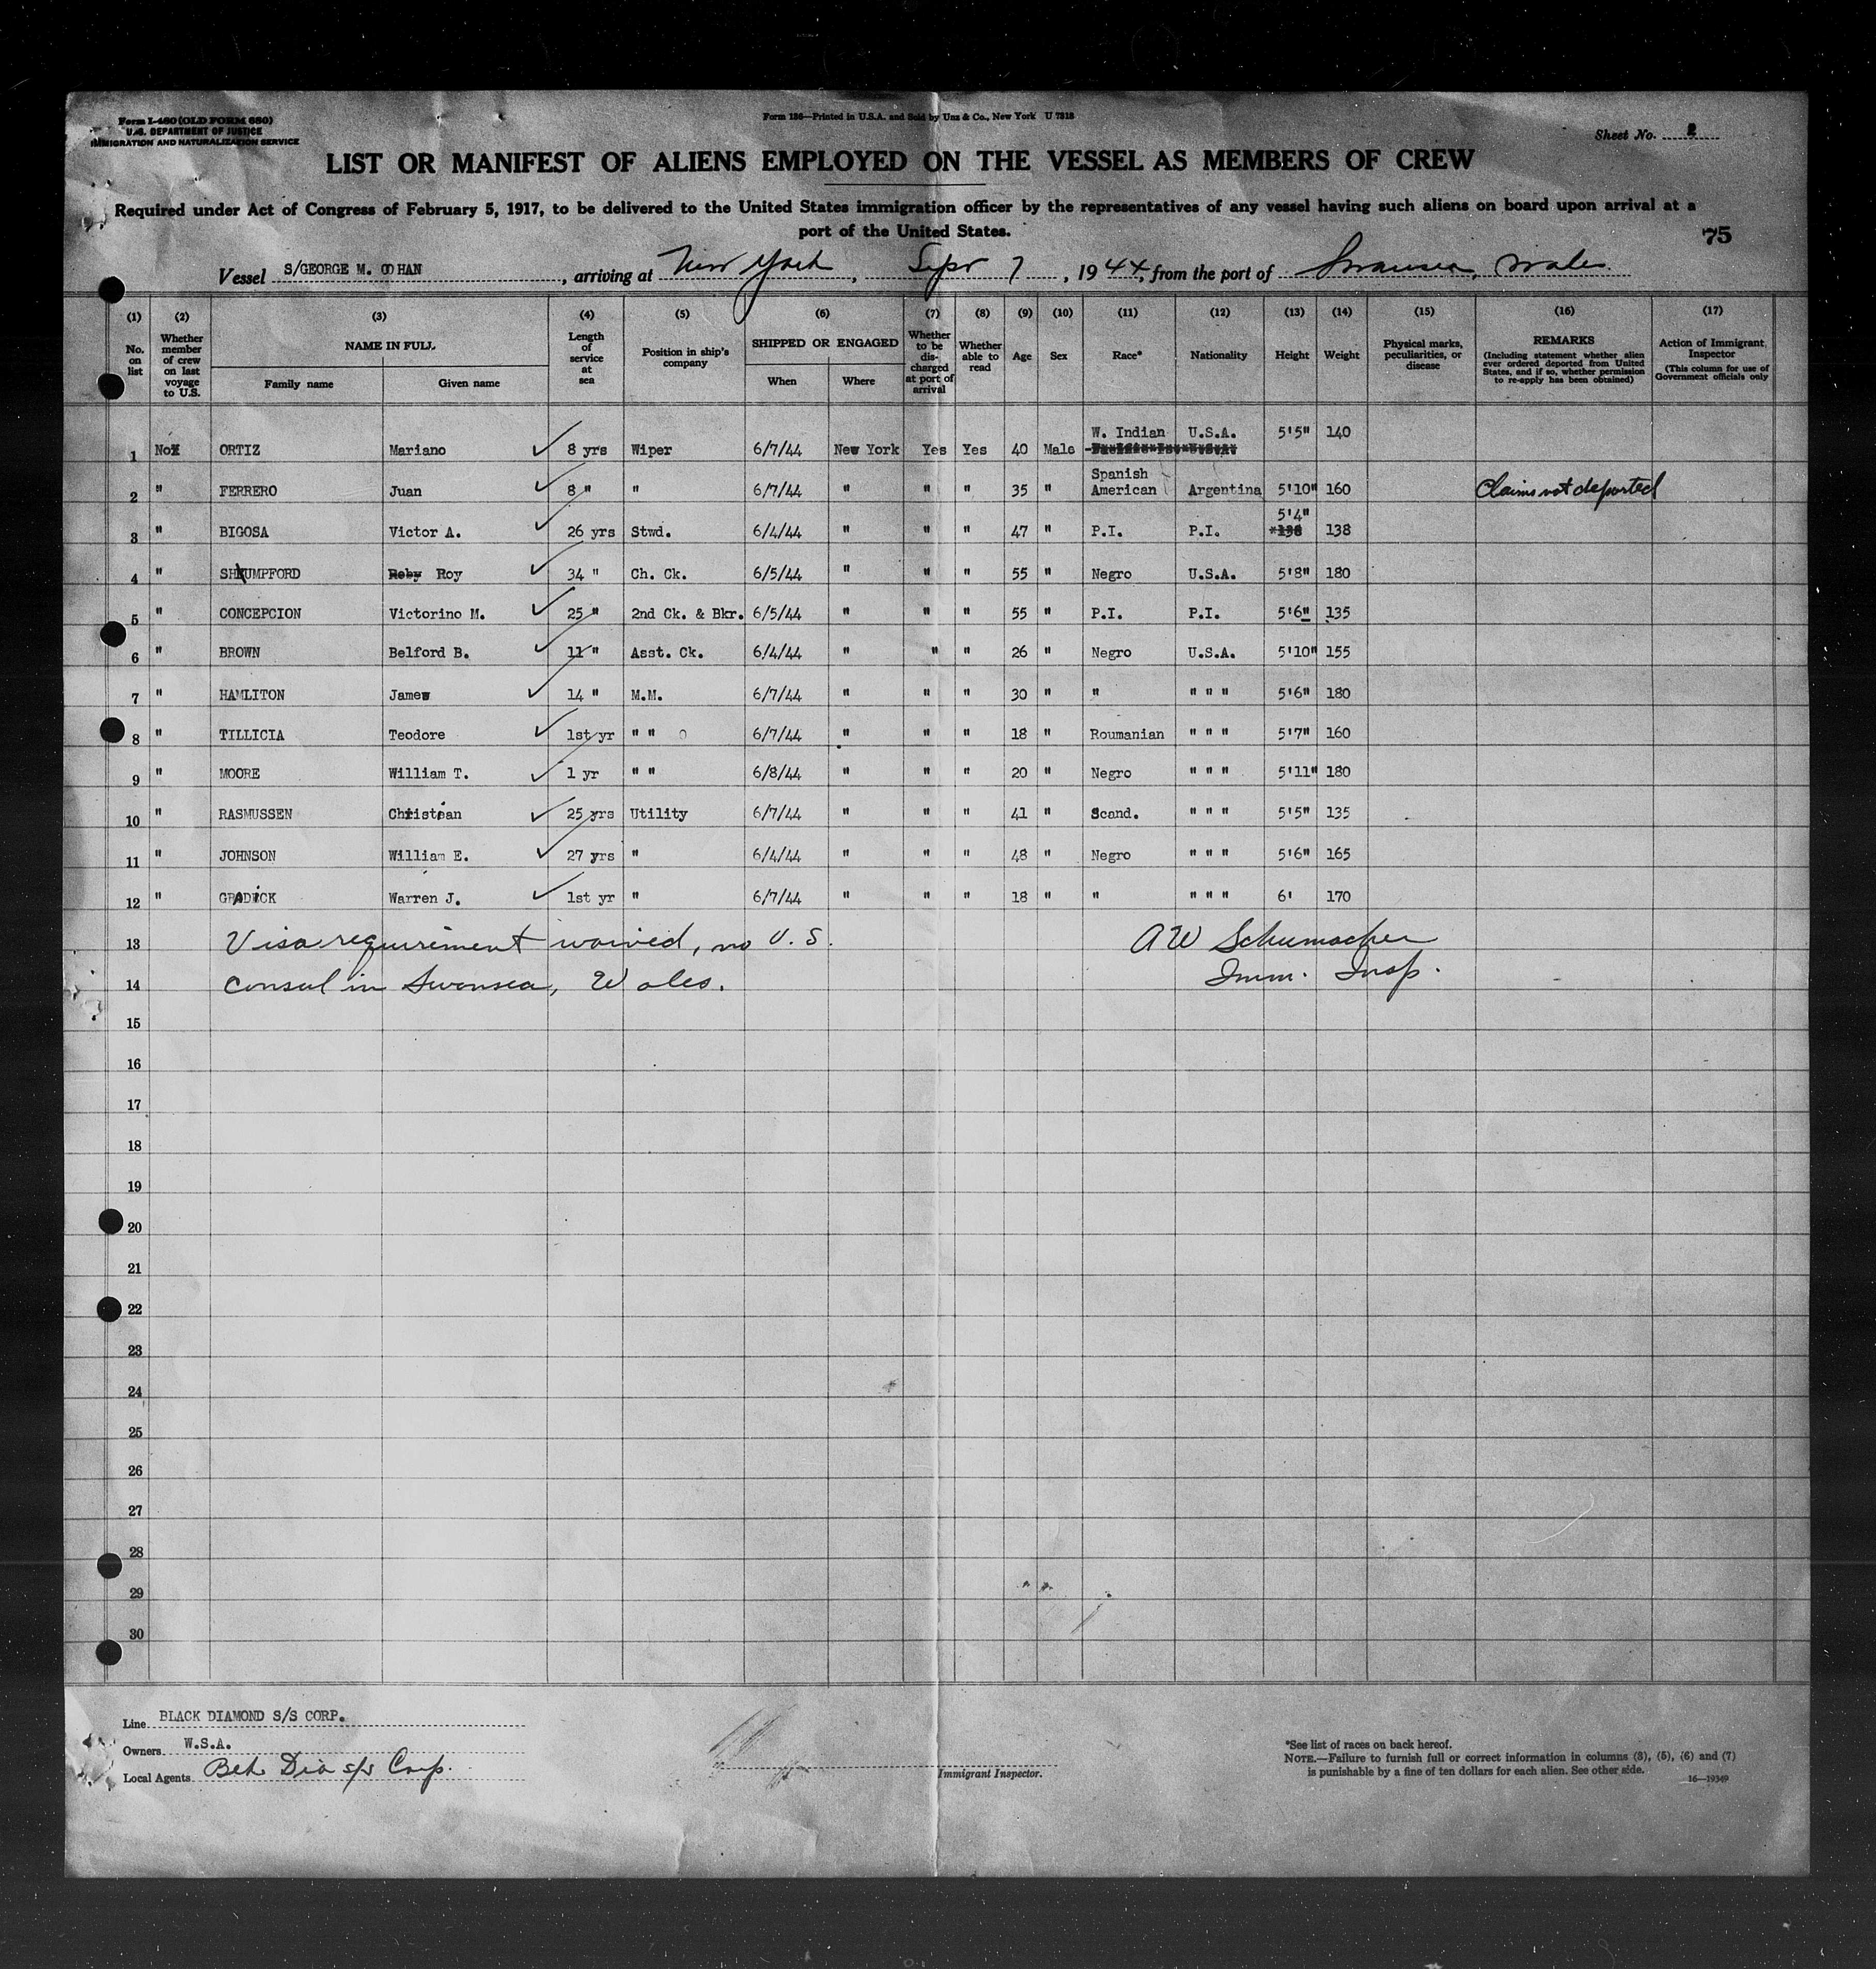 Form I-480 (OLD FORM 680)
U.S. DEPARTMENT OF JUSTICE
IMMIGRATION AND NATURALIZATION SERVICE
Form 136—Printed in U.S.A. and Sold by Unz & Co., New York U 7318
Sheet No. 2
LIST OR MANIFEST OF ALIENS EMPLOYED ON THE VESSEL AS MEMBERS OF CREW
Required under Act of Congress of February 5, 1917, to be delivered to the United States immigration officer by the representatives of any vessel having such aliens on board upon arrival at a
port of the United States.
75
Vessel S/GEORGE M. COHAN, arriving at New York, Sept 7, 1944, from the port of Swansea, Wales.
(1) (2) (3) (4) (5) (6) (7) (8) (9) (10) (11) (12) (13) (14) (15) (16) (17)
No. on list
Whether member of crew on last voyage to U.S.
NAME IN FULL
Family name Given name
Length of service at sea
Position in ship's company
SHIPPED OR ENGAGED
When Where
Whether to be discharged at port of arrival
Whether able to read
Age
Sex
Race*
Nationality
Height
Weight
Physical marks, peculiarities, or disease
REMARKS
(Including statement whether alien ever ordered deported from United States, and if so, whether permission to re-apply has been obtained)
Action of Immigrant Inspector
(This column for use of Government officials only
1 No ORTIZ Mariano 8 yrs Wiper 6/7/44 New York Yes Yes 40 Male W. Indian U.S.A. 5'5" 140
2 " FERRERO Juan 8 " " 6/7/44 " " " 35 " Spanish American Argentina 5'10" 160 Claims not deported
3 " BIGOSA Victor A. 26 yrs Stwd. 6/4/44 " " " 47 " P.I. P.I. 5'4" 138
4 " SHUMPFORD Roy 34 " Ch. Ck. 6/5/44 " " " 55 " Negro U.S.A. 5'8" 180
5 " CONCEPCION Victorino M. 25 " 2nd Ck. & Bkr. 6/5/44 " " " 55 " P.I. P.I. 5'6" 135
6 " BROWN Belford B. 11 " Asst. Ck. 6/4/44 " " " 26 " Negro U.S.A. 5'10" 155
7 " HAMLITON James 14 " M.M. 6/7/44 " " " 30 " " " " " 5'6" 180
8 " TILLICIA Teodore 1st yr " " 6/7/44 " " " 18 " Roumanian " " " 5'7" 160
9 " MOORE William T. 1 yr " " 6/8/44 " " " 20 " Negro " " " 5'11" 180
10 " RASMUSSEN Christian 25 yrs Utility 6/7/44 " " " 41 " Scand. " " " 5'5" 135
11 " JOHNSON William E. 27 yrs " 6/4/44 " " " 48 " Negro " " " 5'6" 165
12 " GRADICK Warren J. 1st yr " 6/7/44 " " " 18 " " " " " 6' 170
13 Visa requirement waived, no U.S. AW Schumacher
14 Consul in Swansea, Wales. Imm. Insp.
15
16
17
18
19
20
21
22
23
24
25
26
27
28
29
30
Line BLACK DIAMOND S/S CORP.
Owners W.S.A.
Local Agents Blk Dia s/s Corp.
Immigrant Inspector.
*See list of races on back hereof.
NOTE.—Failure to furnish full or correct information in columns (3), (5), (6) and (7)
is punishable by a fine of ten dollars for each alien. See other side.
16—19349